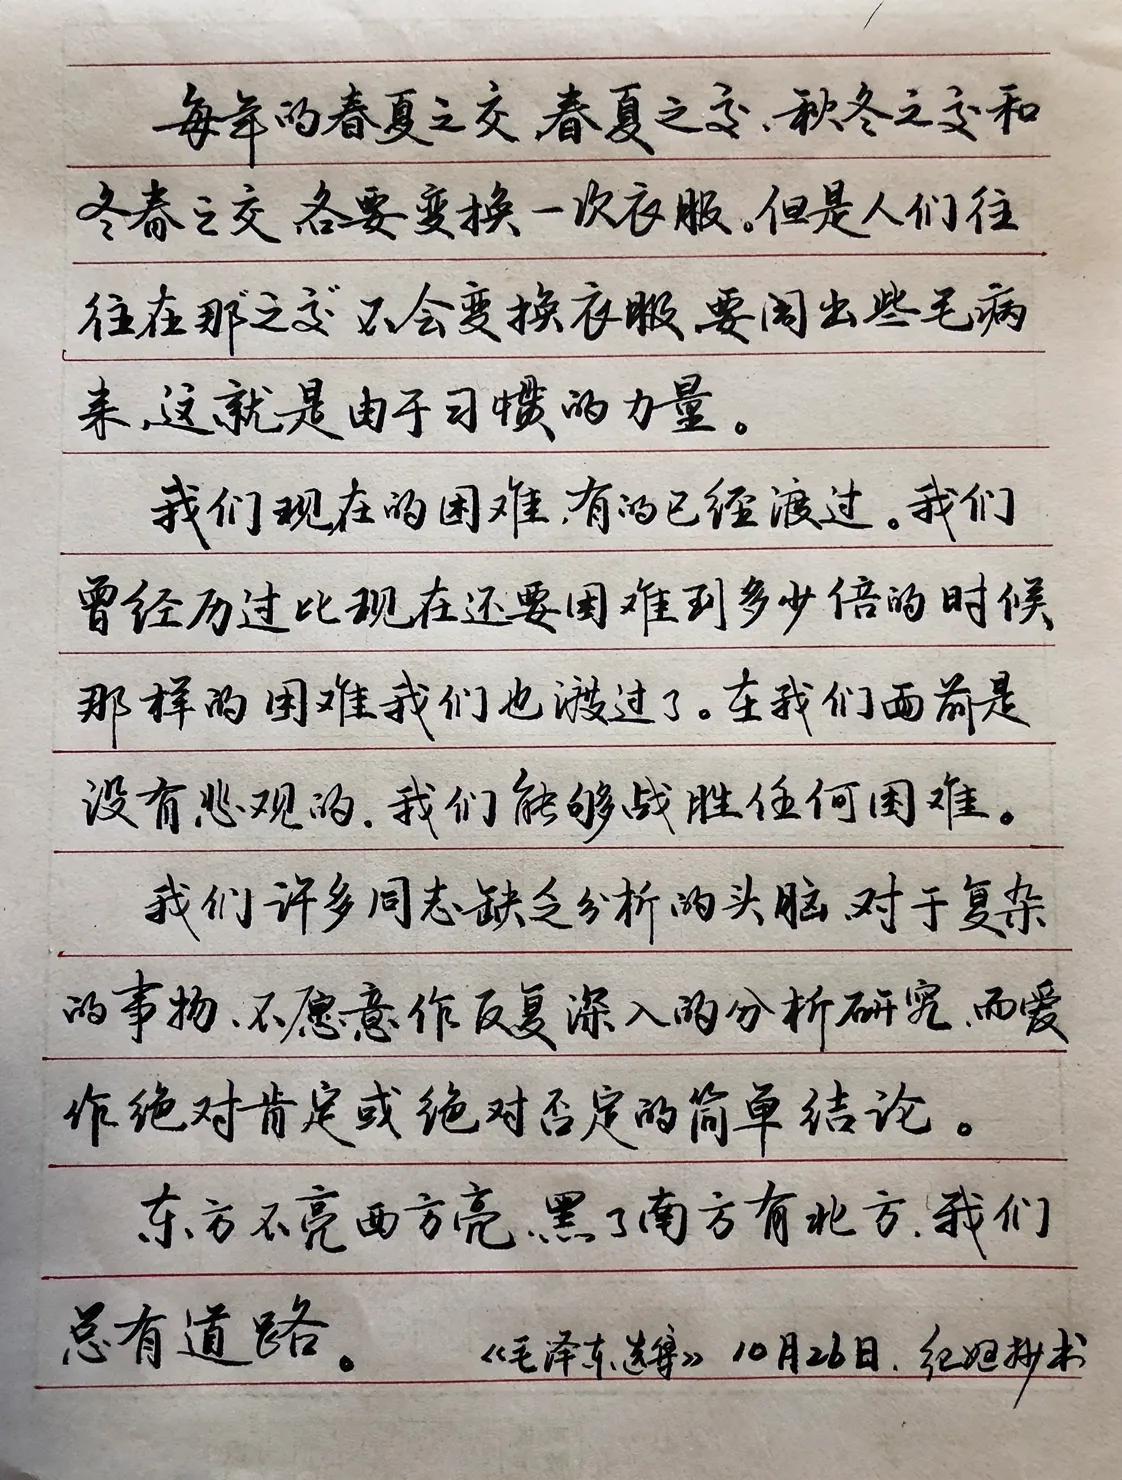 每年的春夏之交,春夏之交、秋冬之交和
冬春之交,各要变换一次衣服。但是人们往
往在那“之交”不会变换衣服,要闹出些毛病
来,这就是由于习惯的力量。
我们现在的困难,有的已经渡过。我们
曾经历过比现在还要困难到多少倍的时候
那样的困难我们也渡过了。在我们面前是
没有悲观的,我们能够战胜任何困难。
我们许多同志缺乏分析的头脑,对于复杂
的事物,不愿意作反复深入的分析研究,而爱
作绝对肯定或绝对否定的简单结论。
东方不亮西方亮,黑了南方有北方,我们
总有道路。
《毛泽东选集》10月26日.红妞抄书